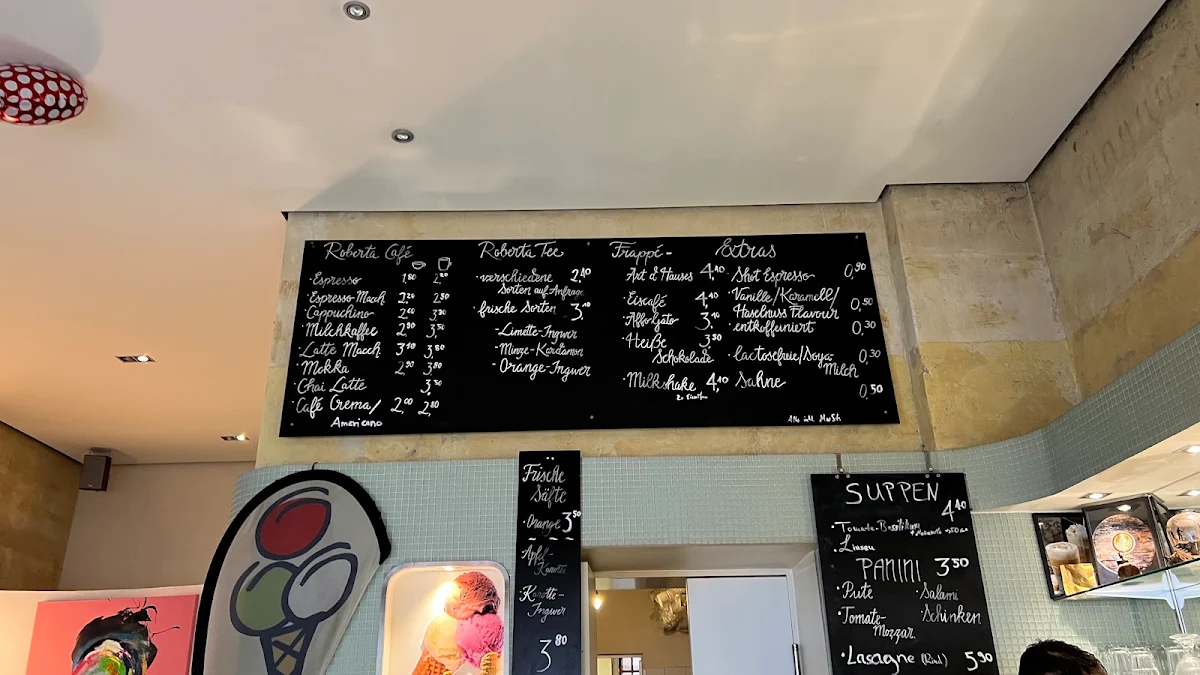 Roberta Café
· Espresso 1,80 2,20
· Espresso Mach 2,20 2,50
· Cappuchino 2,60
· Milchkaffee 2,90 3,50
· Latte Macch 3,10 3,80
· Mokka 2,90 3,80
· Chai Latte
· Café Crema/ 2,00 2,80
Americano
Roberta Tee
· verschiedene 2,40
Sorten auf Anfrage
· frische Sorten 3,10
· Limette-Ingwer
· Minze-Kardamon
· Orange-Ingwer
Frappé-
Art d Hauses 4,40
· Eiscafé 4,40
· Affogato
· Heiße 3,50
Schokolade
· Milkshake 4,40
Extras
· Shot Espresso 0,90
· Vanille/Karamell/
Haselnuss Flavour 0,50
· entkoffeiniert 0,30
· lactosefreie/Soya- 0,30
Milch
Sahne 0,50
MwSt
Frische
Säfte
· Orange 3,50
· Apfel-
Karotte
· Karotte-
Ingwer
3,80
SUPPEN
4,40
· Tomate-Basilikum
· Linsen
PANINI 3,50
· Pute · Salami
· Tomate- · Schinken
Mozzar.
· Lasagne (Rind) 5,90